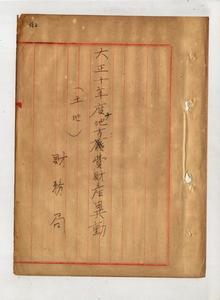 大正十年度地方費財産異動
（土地）
財務局